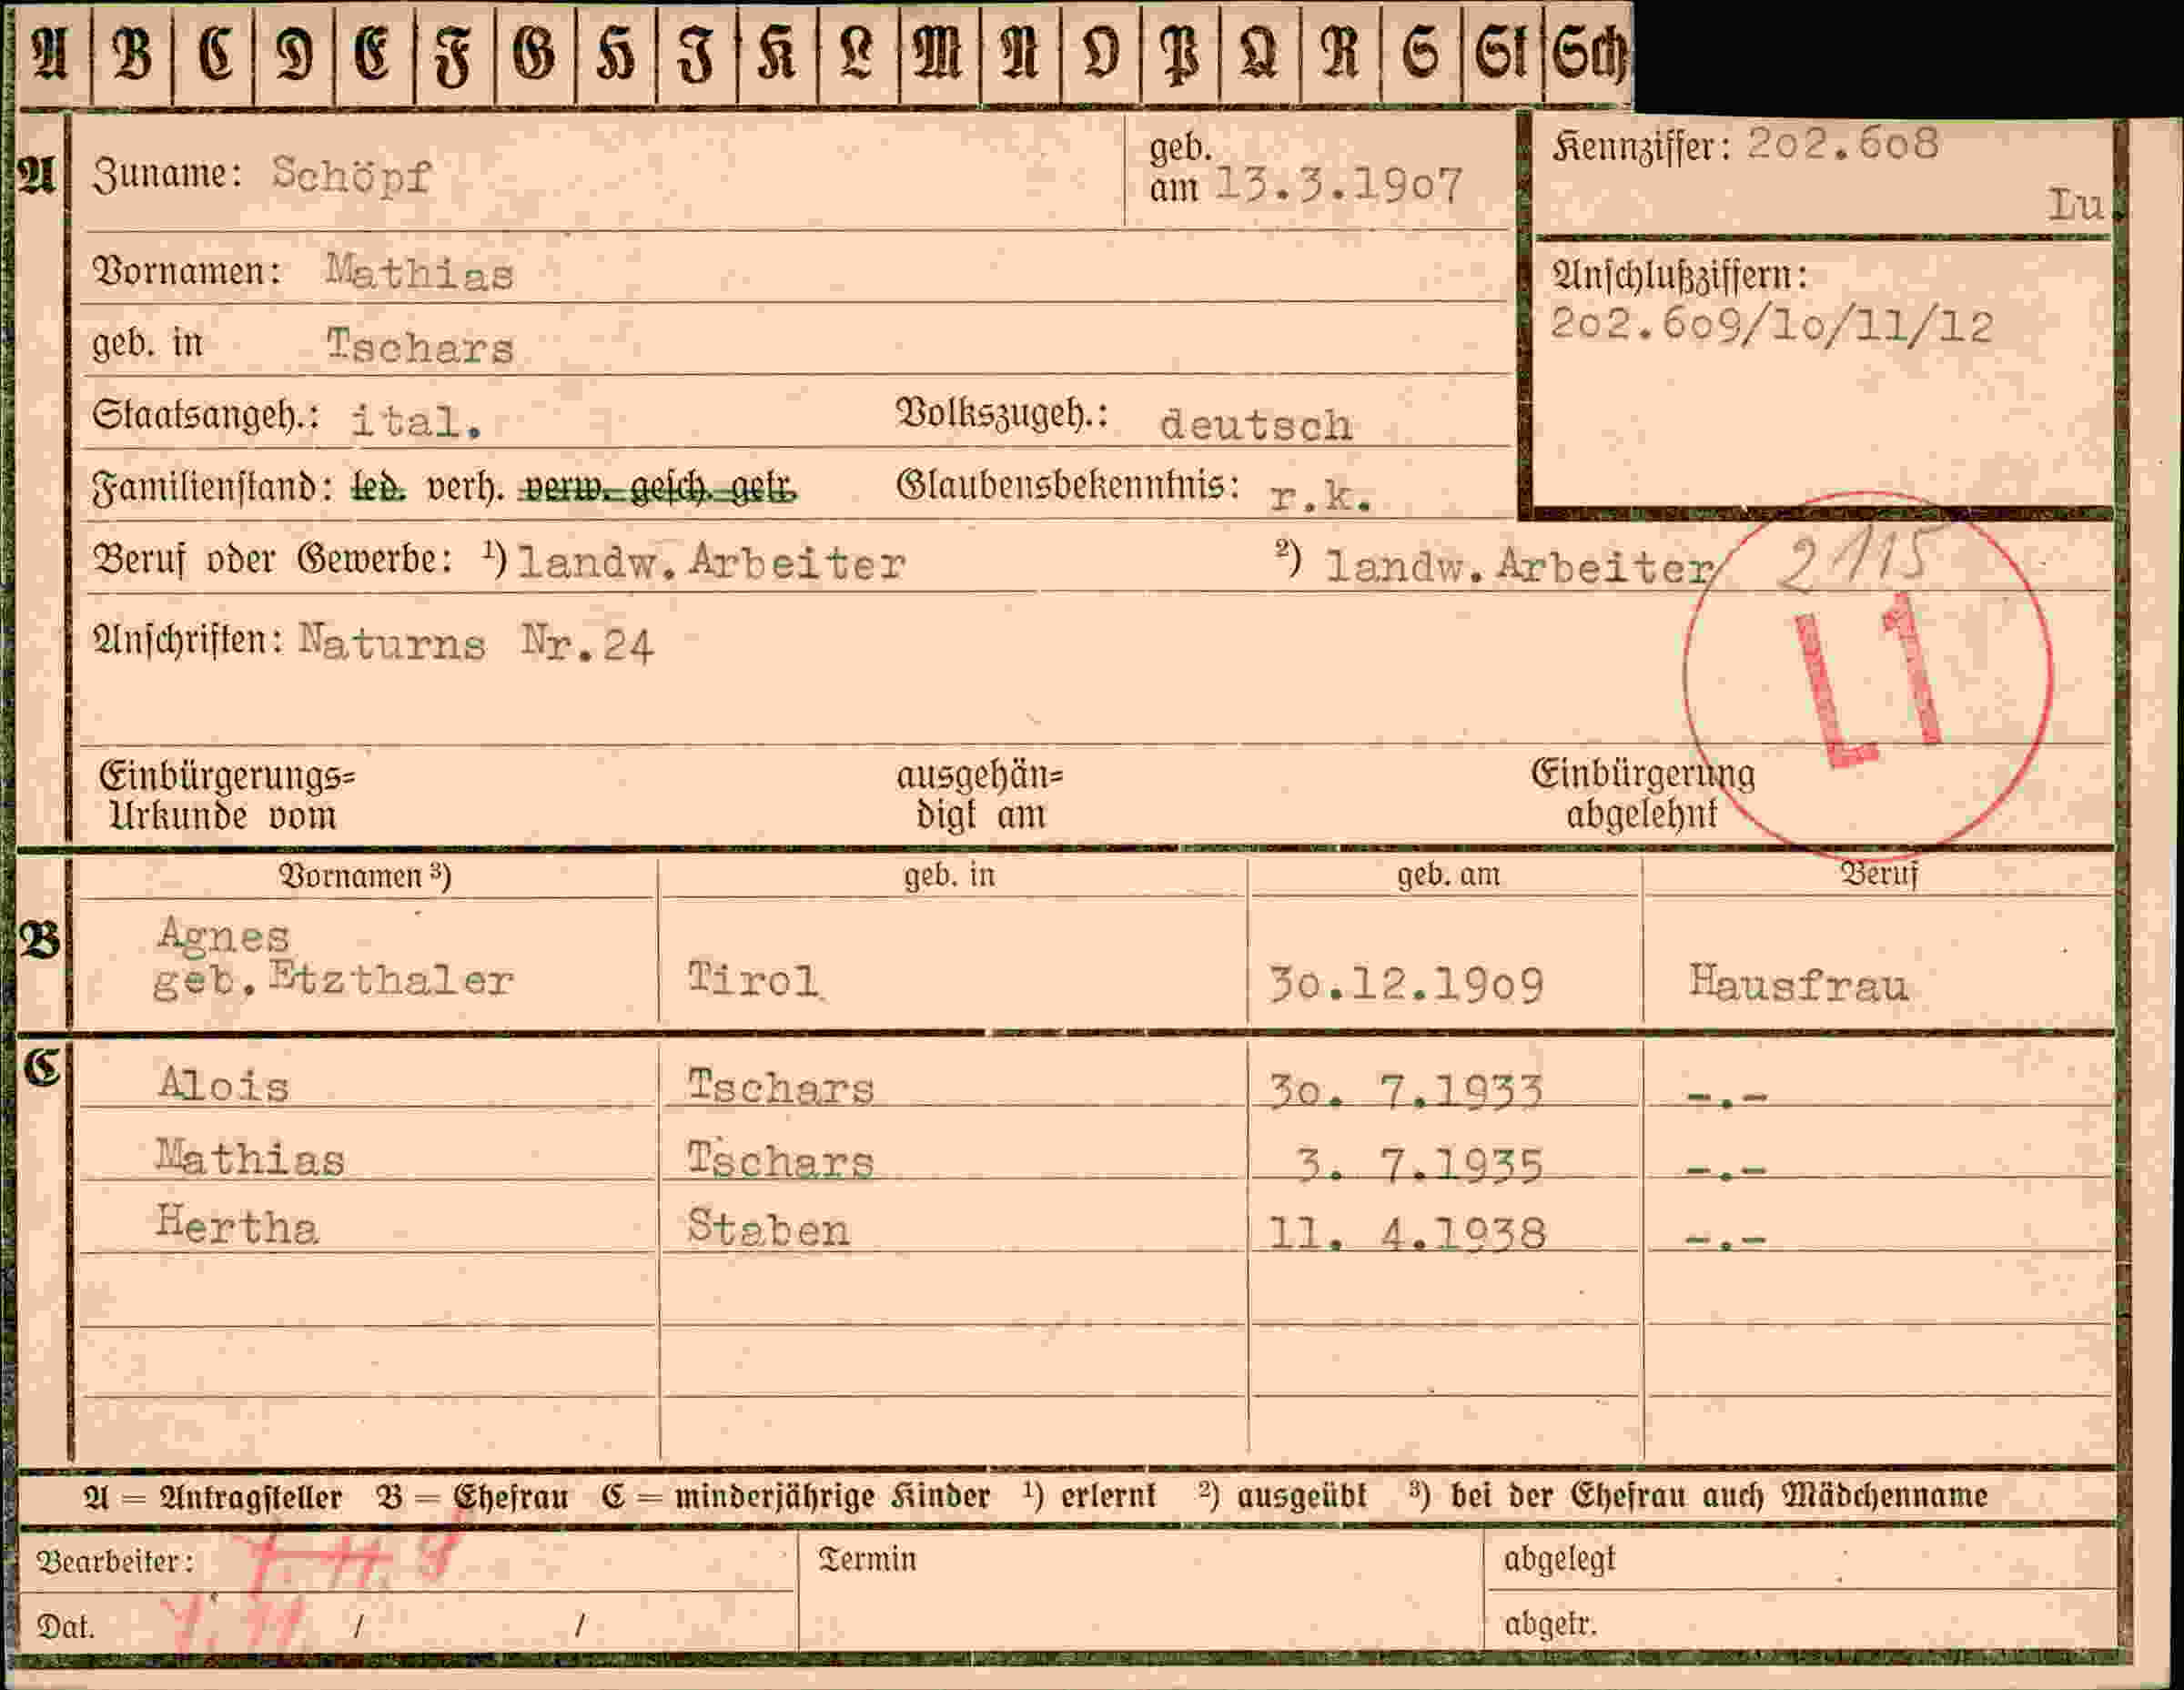 A B C D E F G H I K L M N O P Q R S St Sch
A Zuname: Schöpf geb. am 13.3.1907 Kennziffer: 202.608
Lu.
Vornamen: Mathias
Anschlußziffern:
202.609/10/11/12
geb. in Tschars
Staatsangeh.: ital. Volkszugeh.: deutsch
Familienstand: led. verh. verw. gesch. getr. Glaubensbekenntnis: r.k.
Beruf oder Gewerbe: ¹) landw. Arbeiter ²) landw. Arbeiter
2115
L1
Anschriften: Naturns Nr.24
Einbürgerungs= ausgehän= Einbürgerung
Urkunde vom digt am abgelehnt
Vornamen ³) geb. in geb. am Beruf
B Agnes
geb. Etzthaler Tirol 30.12.1909 Hausfrau
C Alois Tschars 30. 7.1933 -.-
Mathias Tschars 3. 7.1935 -.-
Hertha Staben 11. 4.1938 -.-
A = Antragsteller B = Ehefrau C = minderjährige Kinder ¹) erlernt ²) ausgeübt ³) bei der Ehefrau auch Mädchenname
Bearbeiter: Termin abgelegt
Dat. / / abgetr.